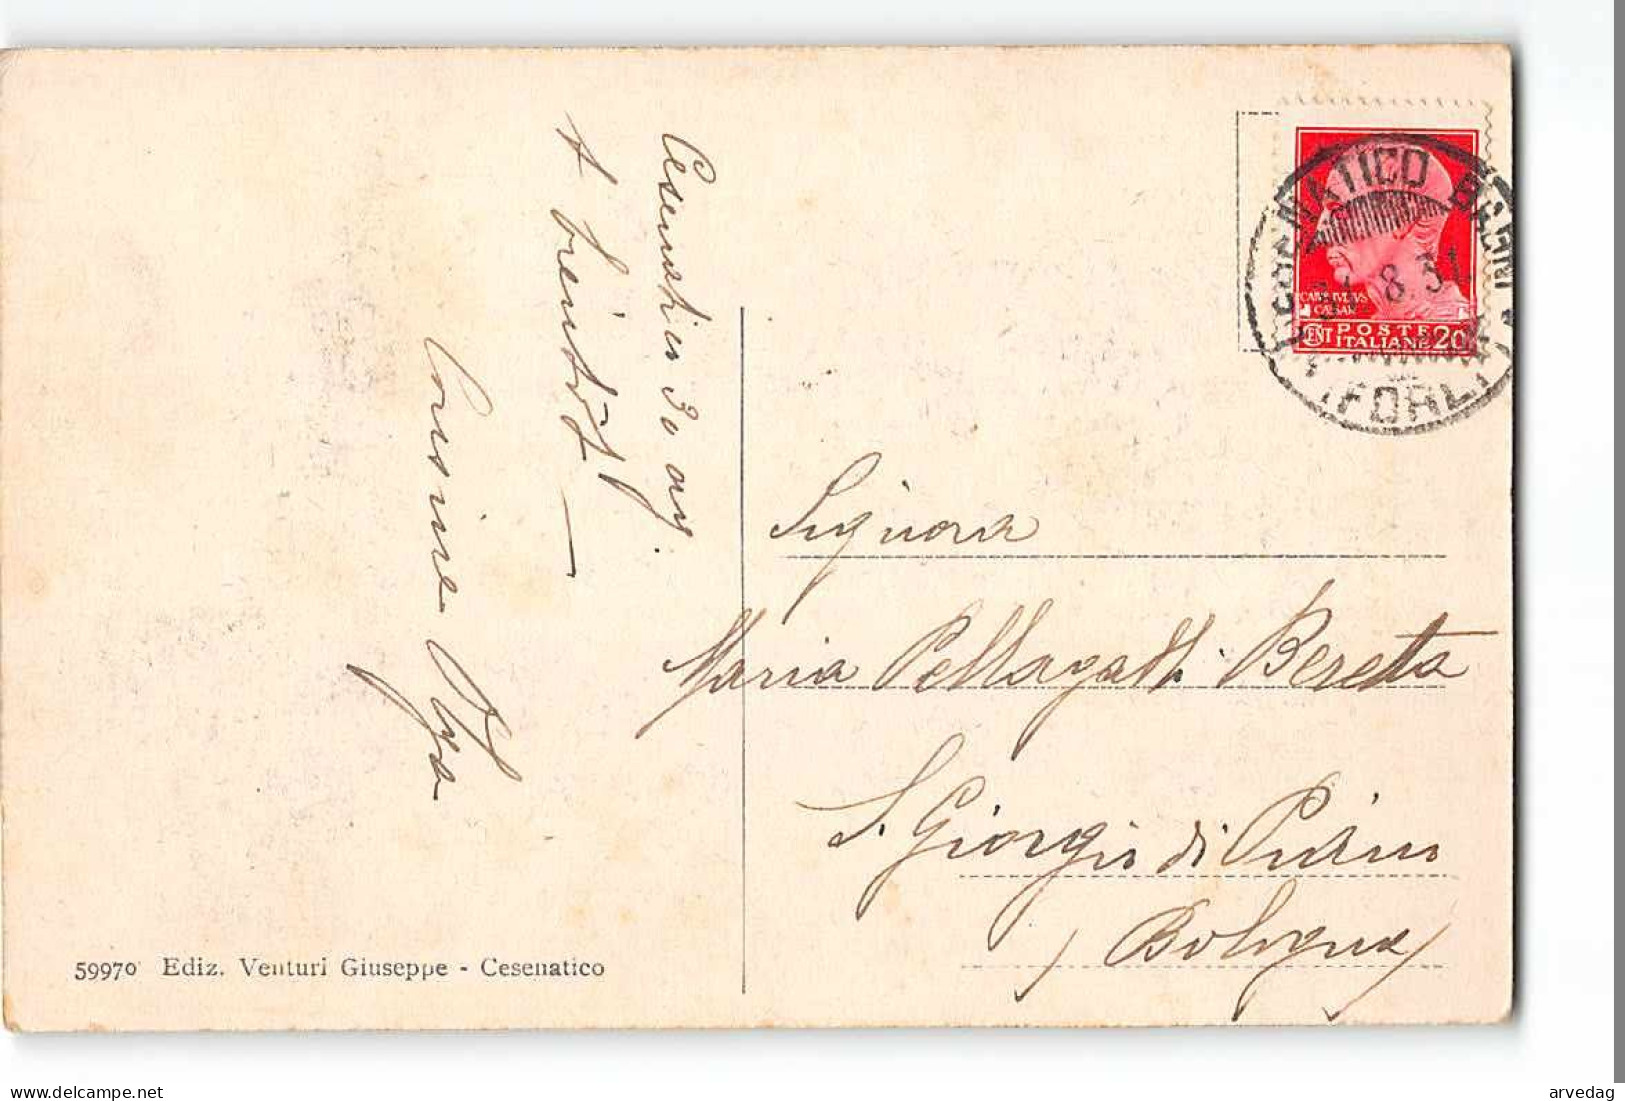 Cesenatico 30 ag.
Cosime Olga
59970 Ediz. Venturi Giuseppe - Cesenatico
CAIVS IVLIVS
CAESAR
CENT POSTE
ITALIANE 20
CESENATICO BAGNI
31 8 31
(FORLI)
Signora
Maria Pellagatti Beretta
S. Giorgio di Piano
(Bologna)
delcampe.net
arvedag